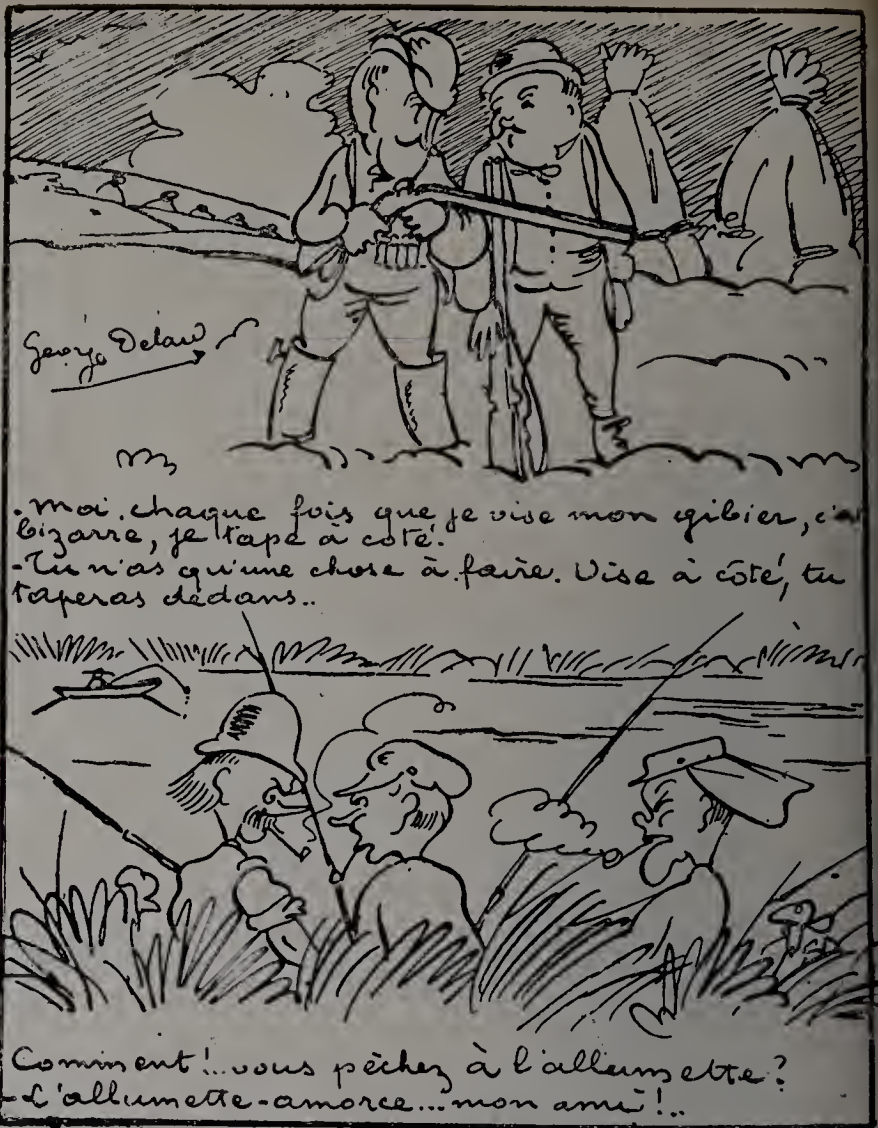 George Delaw
- Moi, chaque fois que je vise mon gibier, c'est
bizarre, je tape à côté.
- Tu n'as qu'une chose à faire. Vise à côté, tu
taperas dedans..
Comment!..vous pêchez à l'allumette?
- L'allumette-amorce...mon ami!..